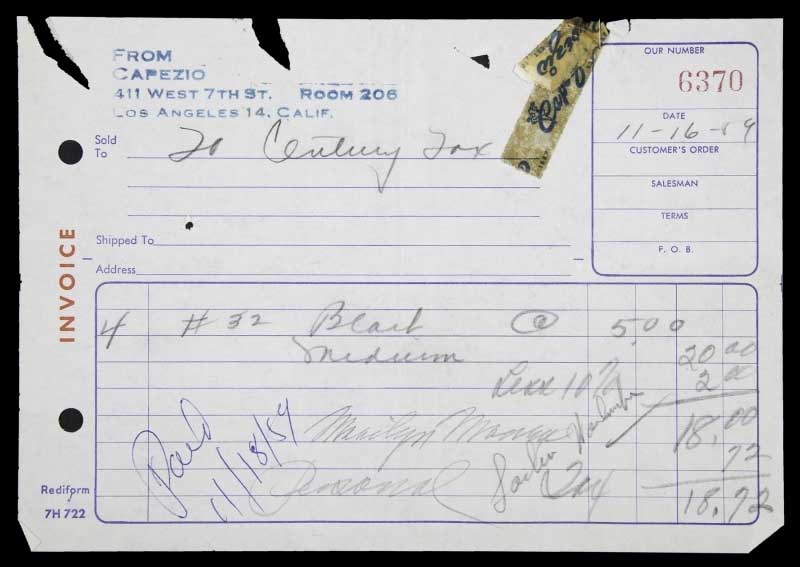 FROM
CAPEZIO
411 WEST 7TH ST. ROOM 206
LOS ANGELES 14, CALIF.
OUR NUMBER
6370
DATE
11-16-59
CUSTOMER'S ORDER
SALESMAN
TERMS
F. O. B.
Sold To 20 Century Fox
Shipped To
Address
INVOICE
4 #32 Black @ 5.00
Medium 20 00
Less 10% 2 00
Marilyn Monroe 18.00
Personal Tax 72
18.72
Paid
11/18/59
Rediform
7H 722